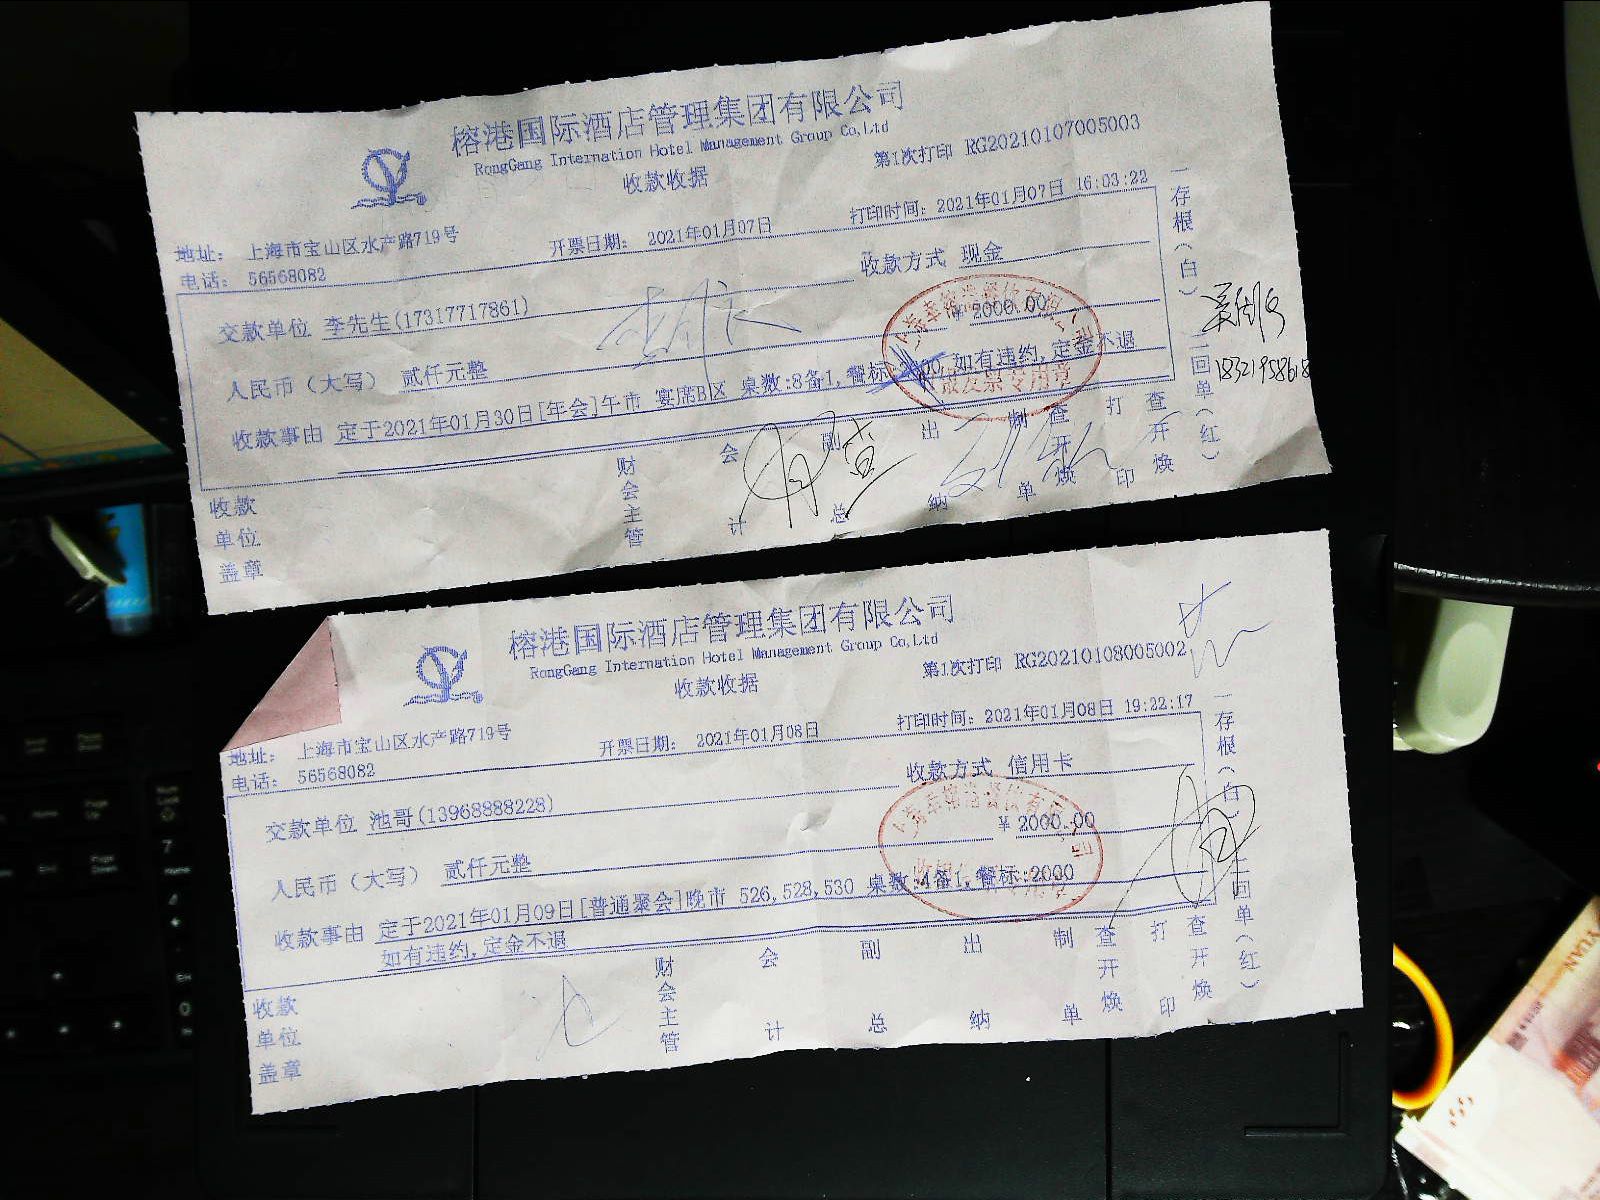 榕港国际酒店管理集团有限公司
RongGang Internation Hotel Management Group Co,Ltd
收款收据
第1次打印 RG20210107005003
地址: 上海市宝山区水产路719号
开票日期: 2021年01月07日
打印时间: 2021年01月07日 16:03:22
电话: 56568082
收款方式 现金
交款单位 李先生(17317717861)
人民币（大写） 贰仟元整
¥ 2000.00
收款事由 定于2021年01月30日[年会]午市 宴席B区 桌数:8备1,餐标: 如有违约,定金不退
发票专用章
收款单位盖章
财会主管
会计
副总
出纳
制单
查开焕
打印
查开焕
一存根(白)
二回单(红)
榕港国际酒店管理集团有限公司
RongGang Internation Hotel Management Group Co,Ltd
收款收据
第1次打印 RG20210108005002
地址: 上海市宝山区水产路719号
开票日期: 2021年01月08日
打印时间: 2021年01月08日 19:22:17
电话: 56568082
收款方式 信用卡
交款单位 池哥(13968888228)
人民币（大写） 贰仟元整
¥ 2000.00
收款事由 定于2021年01月09日[普通聚会]晚市 526,528,530 桌数:4备1,餐标:2000
如有违约,定金不退
收款单位盖章
财会主管
会计
副总
出纳
制单
查开焕
打印
查开焕
一存根(白)
二回单(红)
YUAN